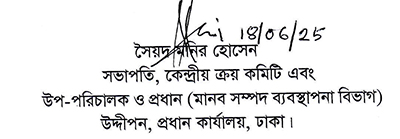 18/06/25
সৈয়দ মনির হোসেন
সভাপতি, কেন্দ্রীয় ক্রয় কমিটি এবং
উপ-পরিচালক ও প্রধান (মানব সম্পদ ব্যবস্থাপনা বিভাগ)
উদ্দীপন, প্রধান কার্যালয়, ঢাকা।